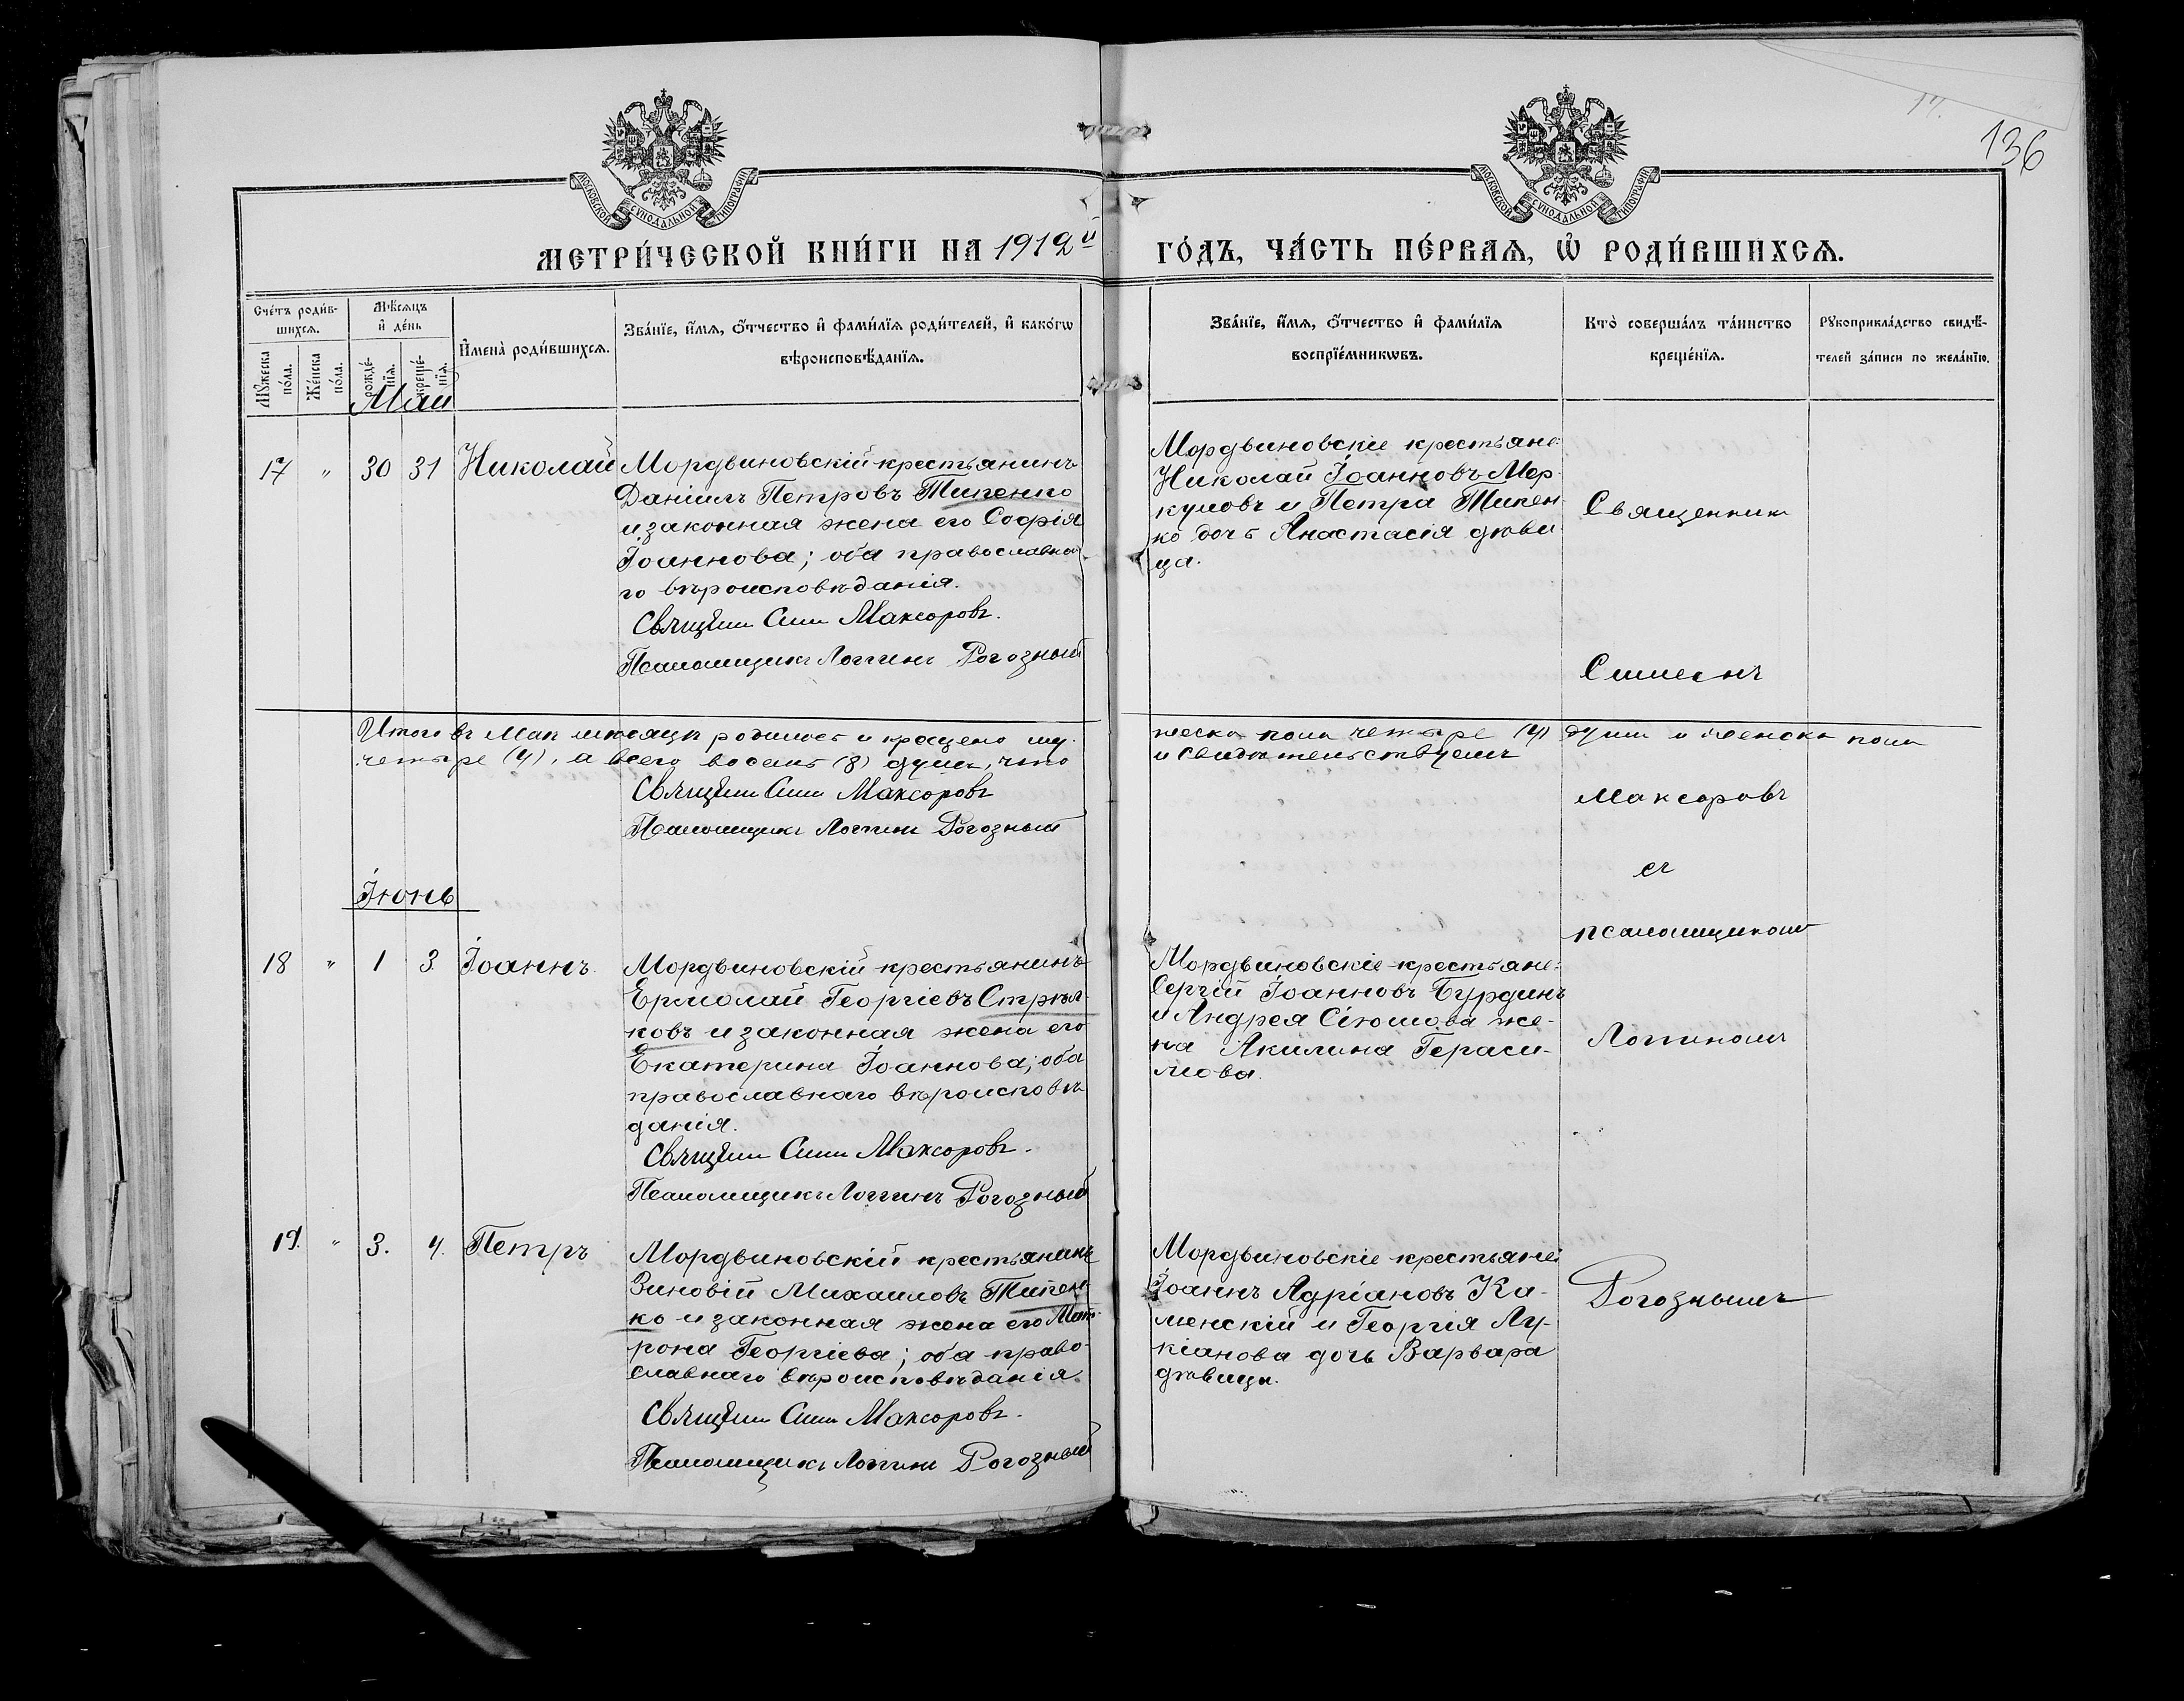 136
МОСКОВСКОЙ СУНОДАЛЬНОЙ ТИПОГРАФІИ
МОСКОВСКОЙ СУНОДАЛЬНОЙ ТИПОГРАФІИ
МЕТРИ́ЧЕСКОЙ КНИ́ГИ НА 1912й ГО́ДЪ, ЧА́СТЬ ПЕ́РВАѦ, Ѽ РОДИ́ВШИХСѦ.
Сче́тъ роди́в-
шихсѧ.
Мꙋ́жеска по́ла.
Же́нска по́ла.
Мѣ́сѧцъ
и҆ де́нь
рожде́-
нїѧ.
креще́-
нїѧ.
И҆мена̀ роди́вшихсѧ.
Зва́нїе, и҆́мѧ, ѻ҆́тчество и҆ фами́лїѧ роди́телей, и҆ како́гѡ
вѣроисповѣ́данїѧ.
Зва́нїе, и҆́мѧ, ѻ҆́тчество и҆ фами́лїѧ
воспрїе́мникѡвъ.
Кто̀ соверша́лъ та́инство
креще́нїѧ.
Рꙋкоприкла́дство свидѣ́-
телей за́писи по жела́нїю.
Май
17 " 30 31 Николай
Мордвиновскій крестьянинъ
Даніилъ Петровъ Типенко
и законная жена его Софія
Іоаннова; оба православна-
го вѣроисповѣданія.
Священ Сим Максоровъ.
Псаломщикъ Логгинъ Рогозный
Мордвиновскіе крестьяне:
Николай Іоанновъ Мер-
куловъ и Петра Типен-
ко дочь Анастасія дѣви
ца.
Священник
Симеонъ
Итого въ Маѣ мѣсяцѣ родилось и крещено му-
жеска пола четыре (4) души и женска пола
четыре (4), а всего восемь (8) душъ, что
и свидѣтельствуемъ
Священ Сим Максоровъ
Псаломщикъ Логгинъ Рогозный
Максоровъ
съ
псаломщикомъ
Іюнь
18 " 1 3 Іоаннъ.
Мордвиновскій крестьянинъ
Ермолай Георгіевъ Стрѣл-
ковъ и законная жена его
Екатерина Іоаннова; оба
православнаго вѣроисповѣ-
данія.
Священ Сим Максоровъ.
Псаломщикъ Логгинъ Рогозный
Мордвиновскіе крестьяне:
Сергій Іоанновъ Бурдинъ
и Андрея Сѣюмова же-
на Акилина Гераси-
мова.
Логгиномъ
19. " 3. 4. Петръ
Мордвиновскій крестьянинъ
Зиновій Михаиловъ Типен-
ко и законная жена его Мат-
рона Георгіева; оба право-
славнаго вѣроисповѣданія.
Священ Сим Максоровъ.
Псаломщикъ Логгинъ Рогозный
Мордвиновскіе крестьяне:
Іоаннъ Адріановъ Ка-
менскій и Георгія Лу-
кіанова дочь Варвара
дѣвица.
Рогознымъ